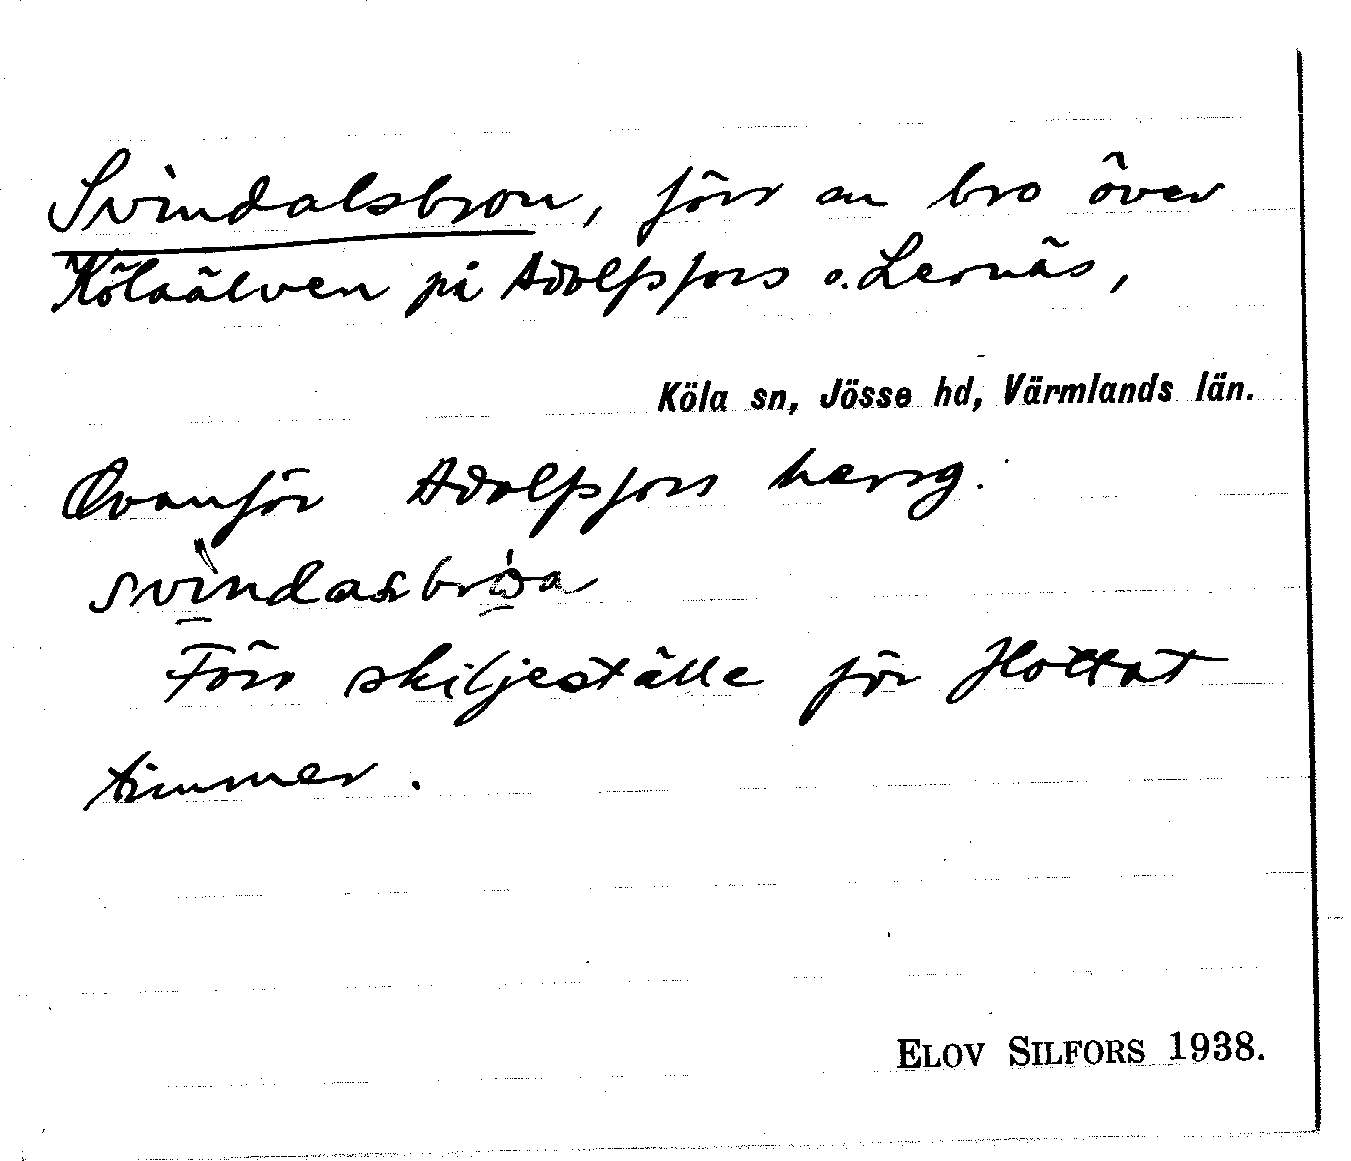 Svindalsbron, förr en bro över
Köläälven på Adolfsfors o. Lernäs,
Köla sn, Jösse hd, Värmlands län.
Ovanför Adolfsfors herrg.
Förr skiljeställe för flottat
timmer.
ELOV SILFORS 1938.